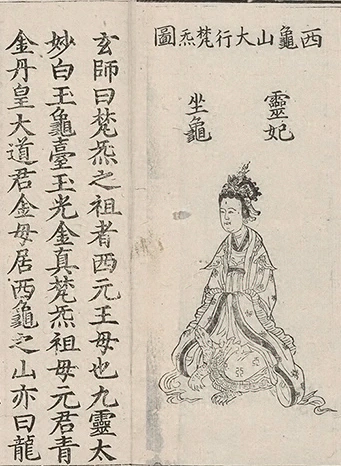 西龜山大行梵炁圖
靈妃
坐龜
玄師曰梵炁之祖者西元王母也九靈太
妙白玉龜臺玉光金真梵炁祖母元君青
金丹皇大道君金母居西龜之山亦曰龍